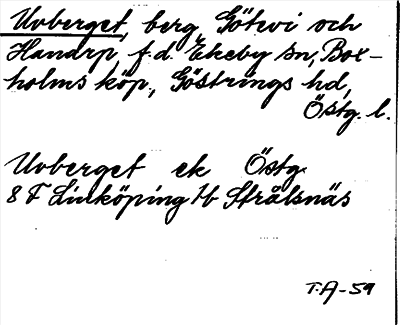 Uvberget, berg, Götevi och
Handrp, f.d. Ekeby sn, Box-
holms köp., Göstrings hd,
Östg. l.
Uvberget ek Östg.
8 F Linköping 1b Strålsnäs
T.A-59